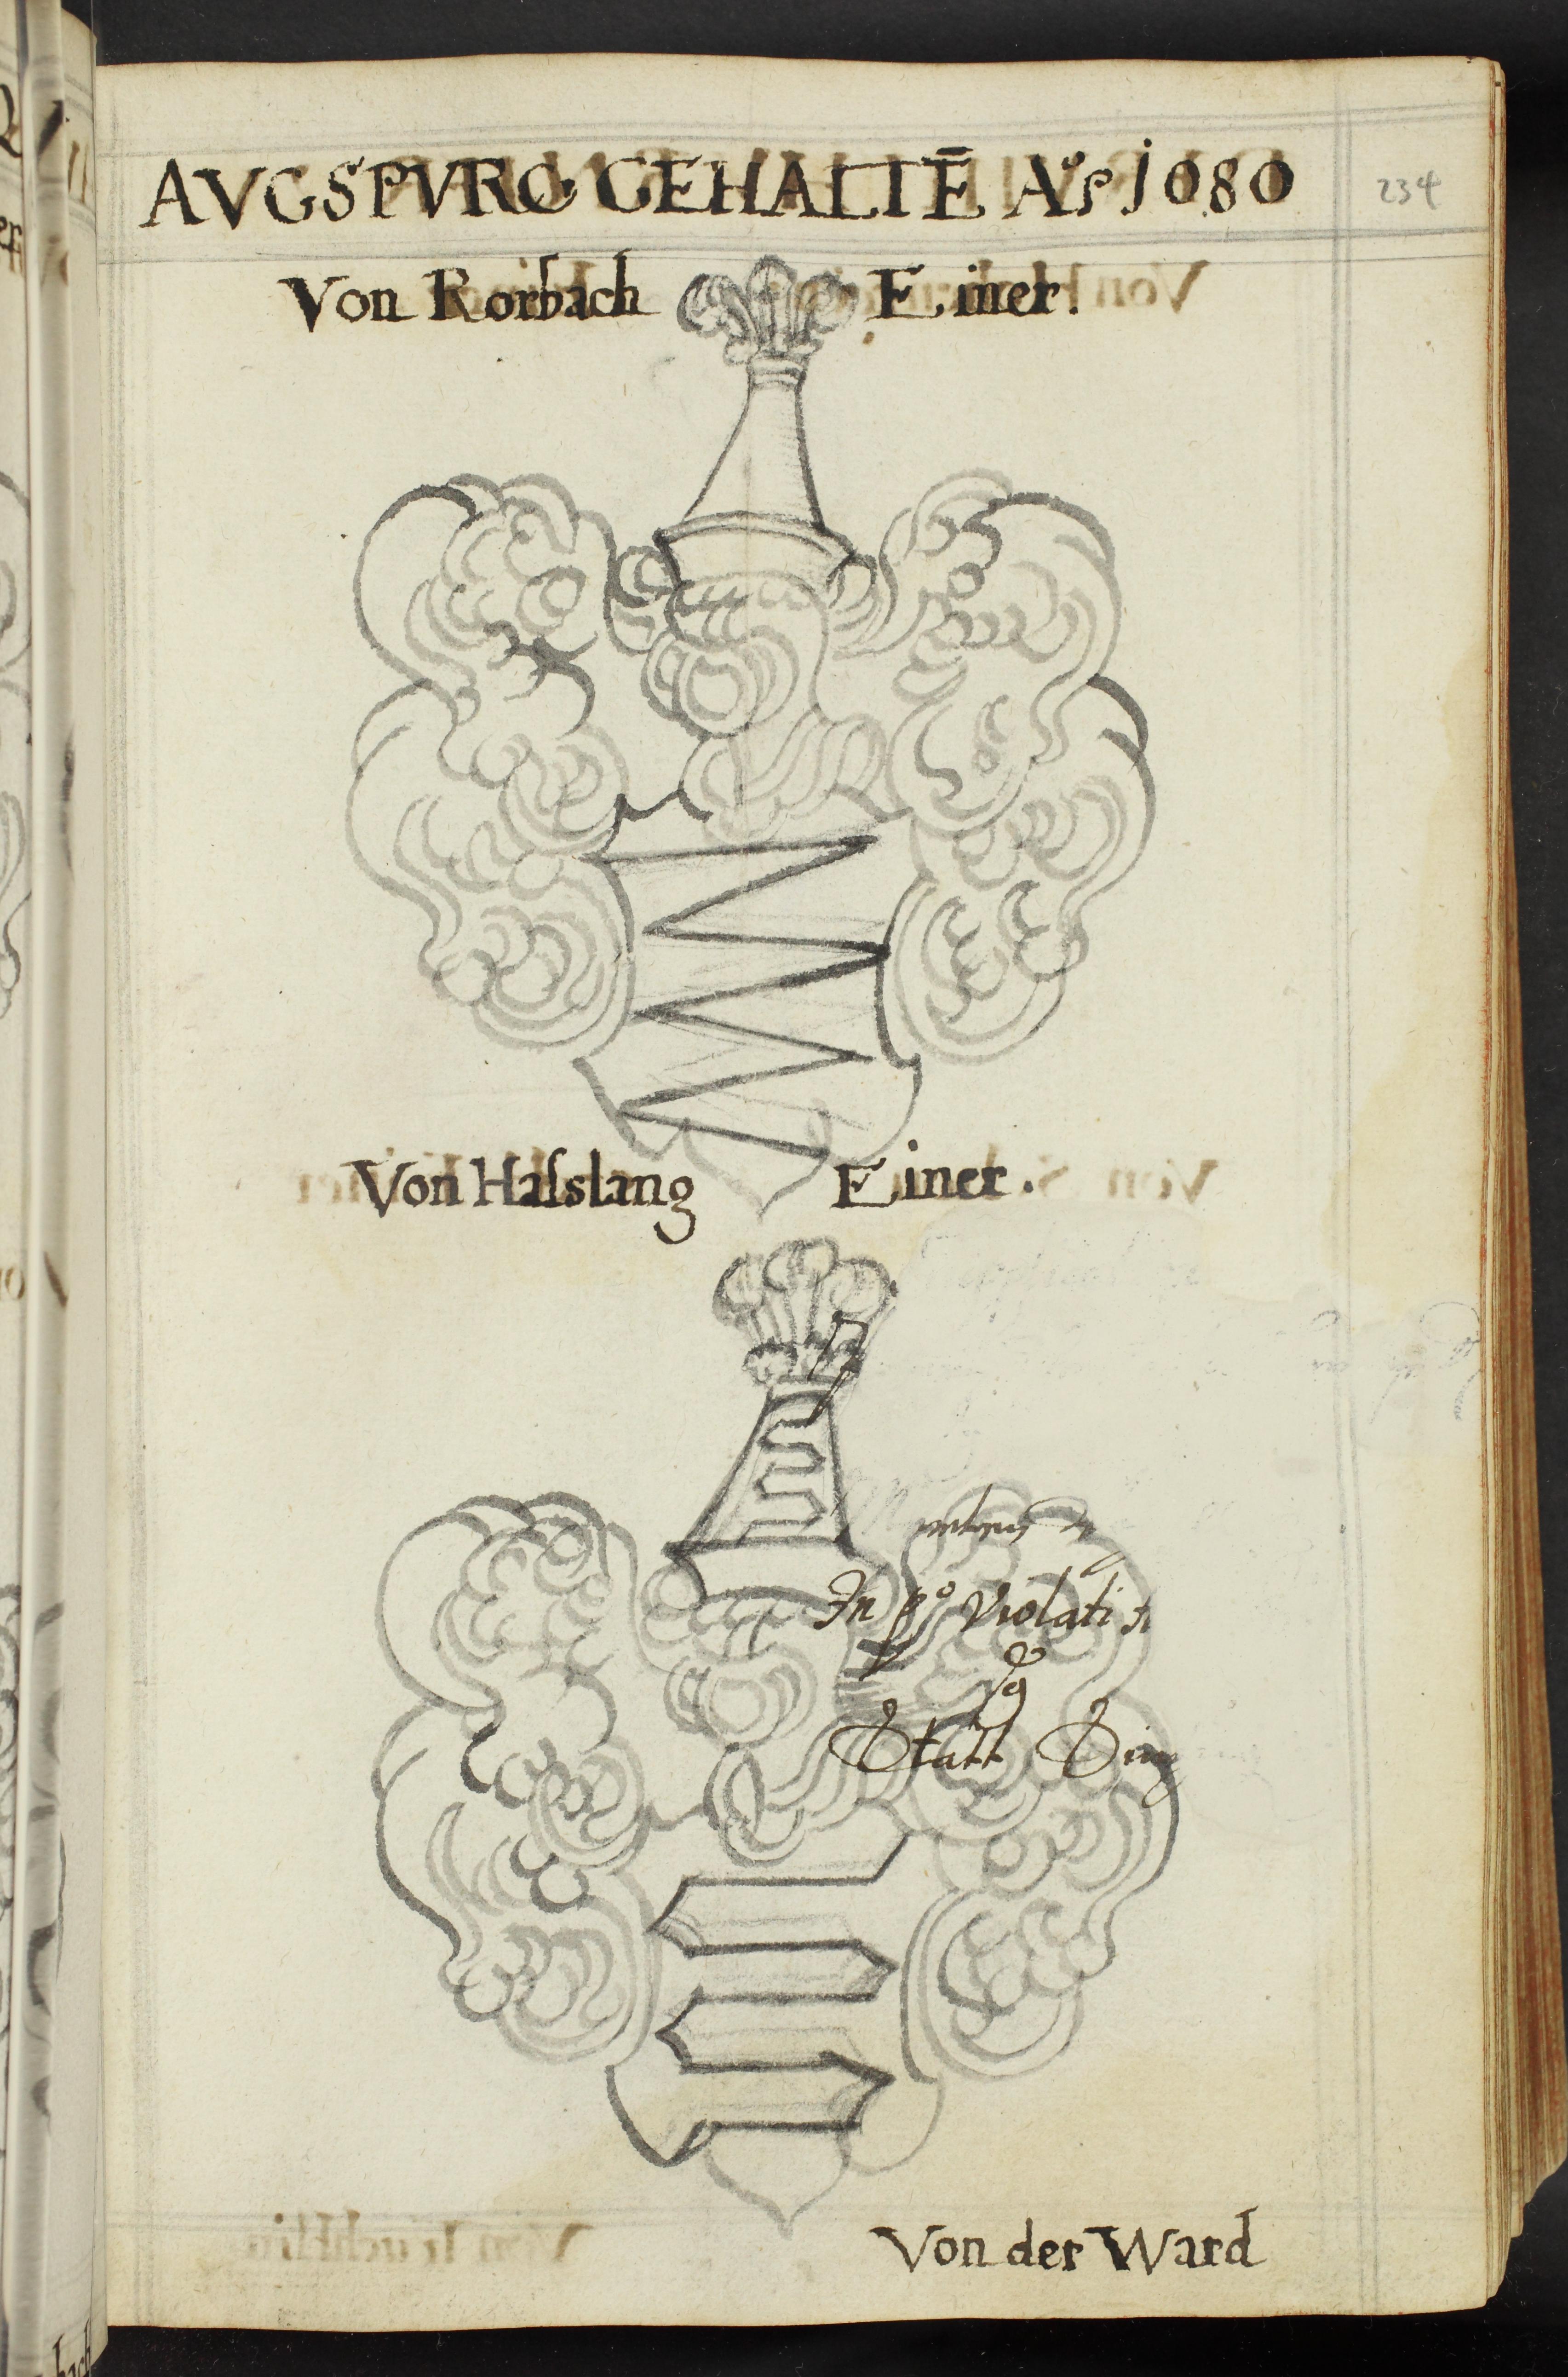 AVGSPVRG GEHALTĒ Aº 1080
234
Von Rorbach Einer.
Von Hasslang Einer.
In pº Violati
Statt
Von der Ward